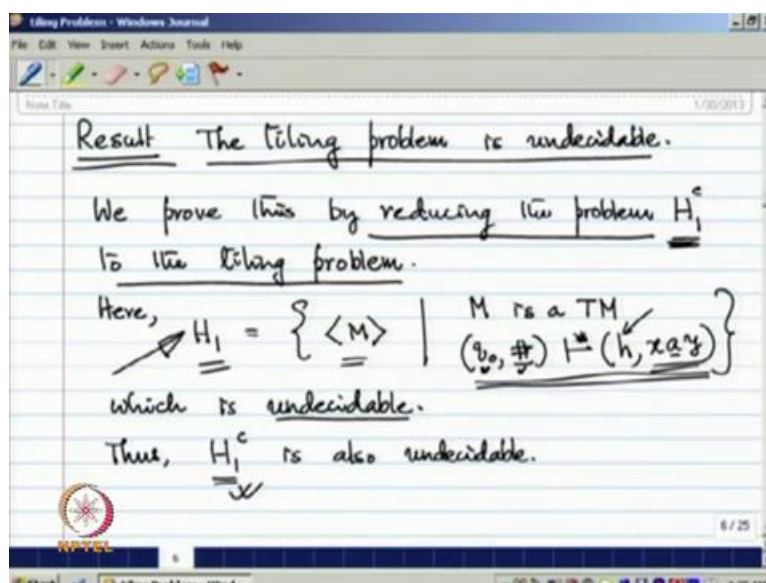 tiling Problem - Windows Journal
File Edit View Insert Actions Tools Help
Note Title
1/30/2013
Result The tiling problem is undecidable.
We prove this by reducing the problem H₁ᶜ
to the tiling problem.
Here,
H₁ = { ⟨M⟩ | M is a TM
(q₀, #) ⊢* (h, xay) }
which is undecidable.
Thus, H₁ᶜ is also undecidable.
NPTEL
6 / 25
6